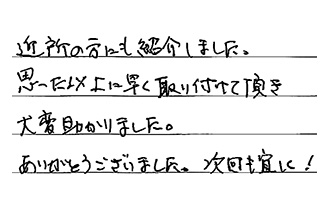 近所の方にも紹介しました。
思った以上に早く取り付けて頂き
大変助かりました。
ありがとうございました。次回も宜しく！